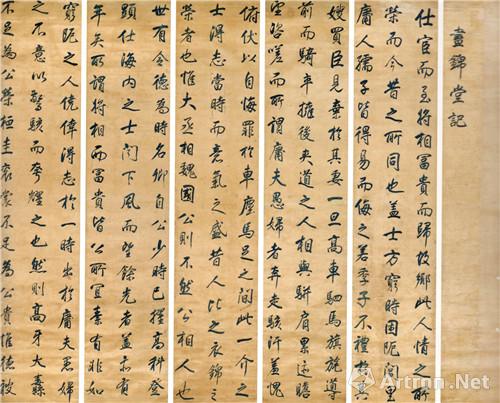 晝錦堂記
仕宦而至將相冨貴而歸故鄉此人情之所
榮而今昔之所同也蓋士方窮時困阨閭里
庸人孺子皆得易而侮之若季子不禮於其
嫂買臣見棄於其妻一旦高車駟馬旗旄導
前而騎卒擁後夾道之人相與駢肩累迹瞻
望咨嗟而所謂庸夫愚婦者奔走駭汗羞愧
俯伏以自悔罪於車塵馬足之間此一介之
士得志當時而意氣之盛昔人比之衣錦之
榮者也惟大丞相魏國公則不然公相人也
世有令德為時名卿自公少時已擢高科登
顯仕海內之士聞下風而望餘光者蓋亦有
年矣所謂將相而冨貴皆公所宜素有非如
窮阨之人僥倖得志於一時出於庸夫愚婦
之不意以驚駭而夸耀之也然則高牙大纛
不足為公榮桓圭袞裳不足為公貴惟德被
Artron.Net